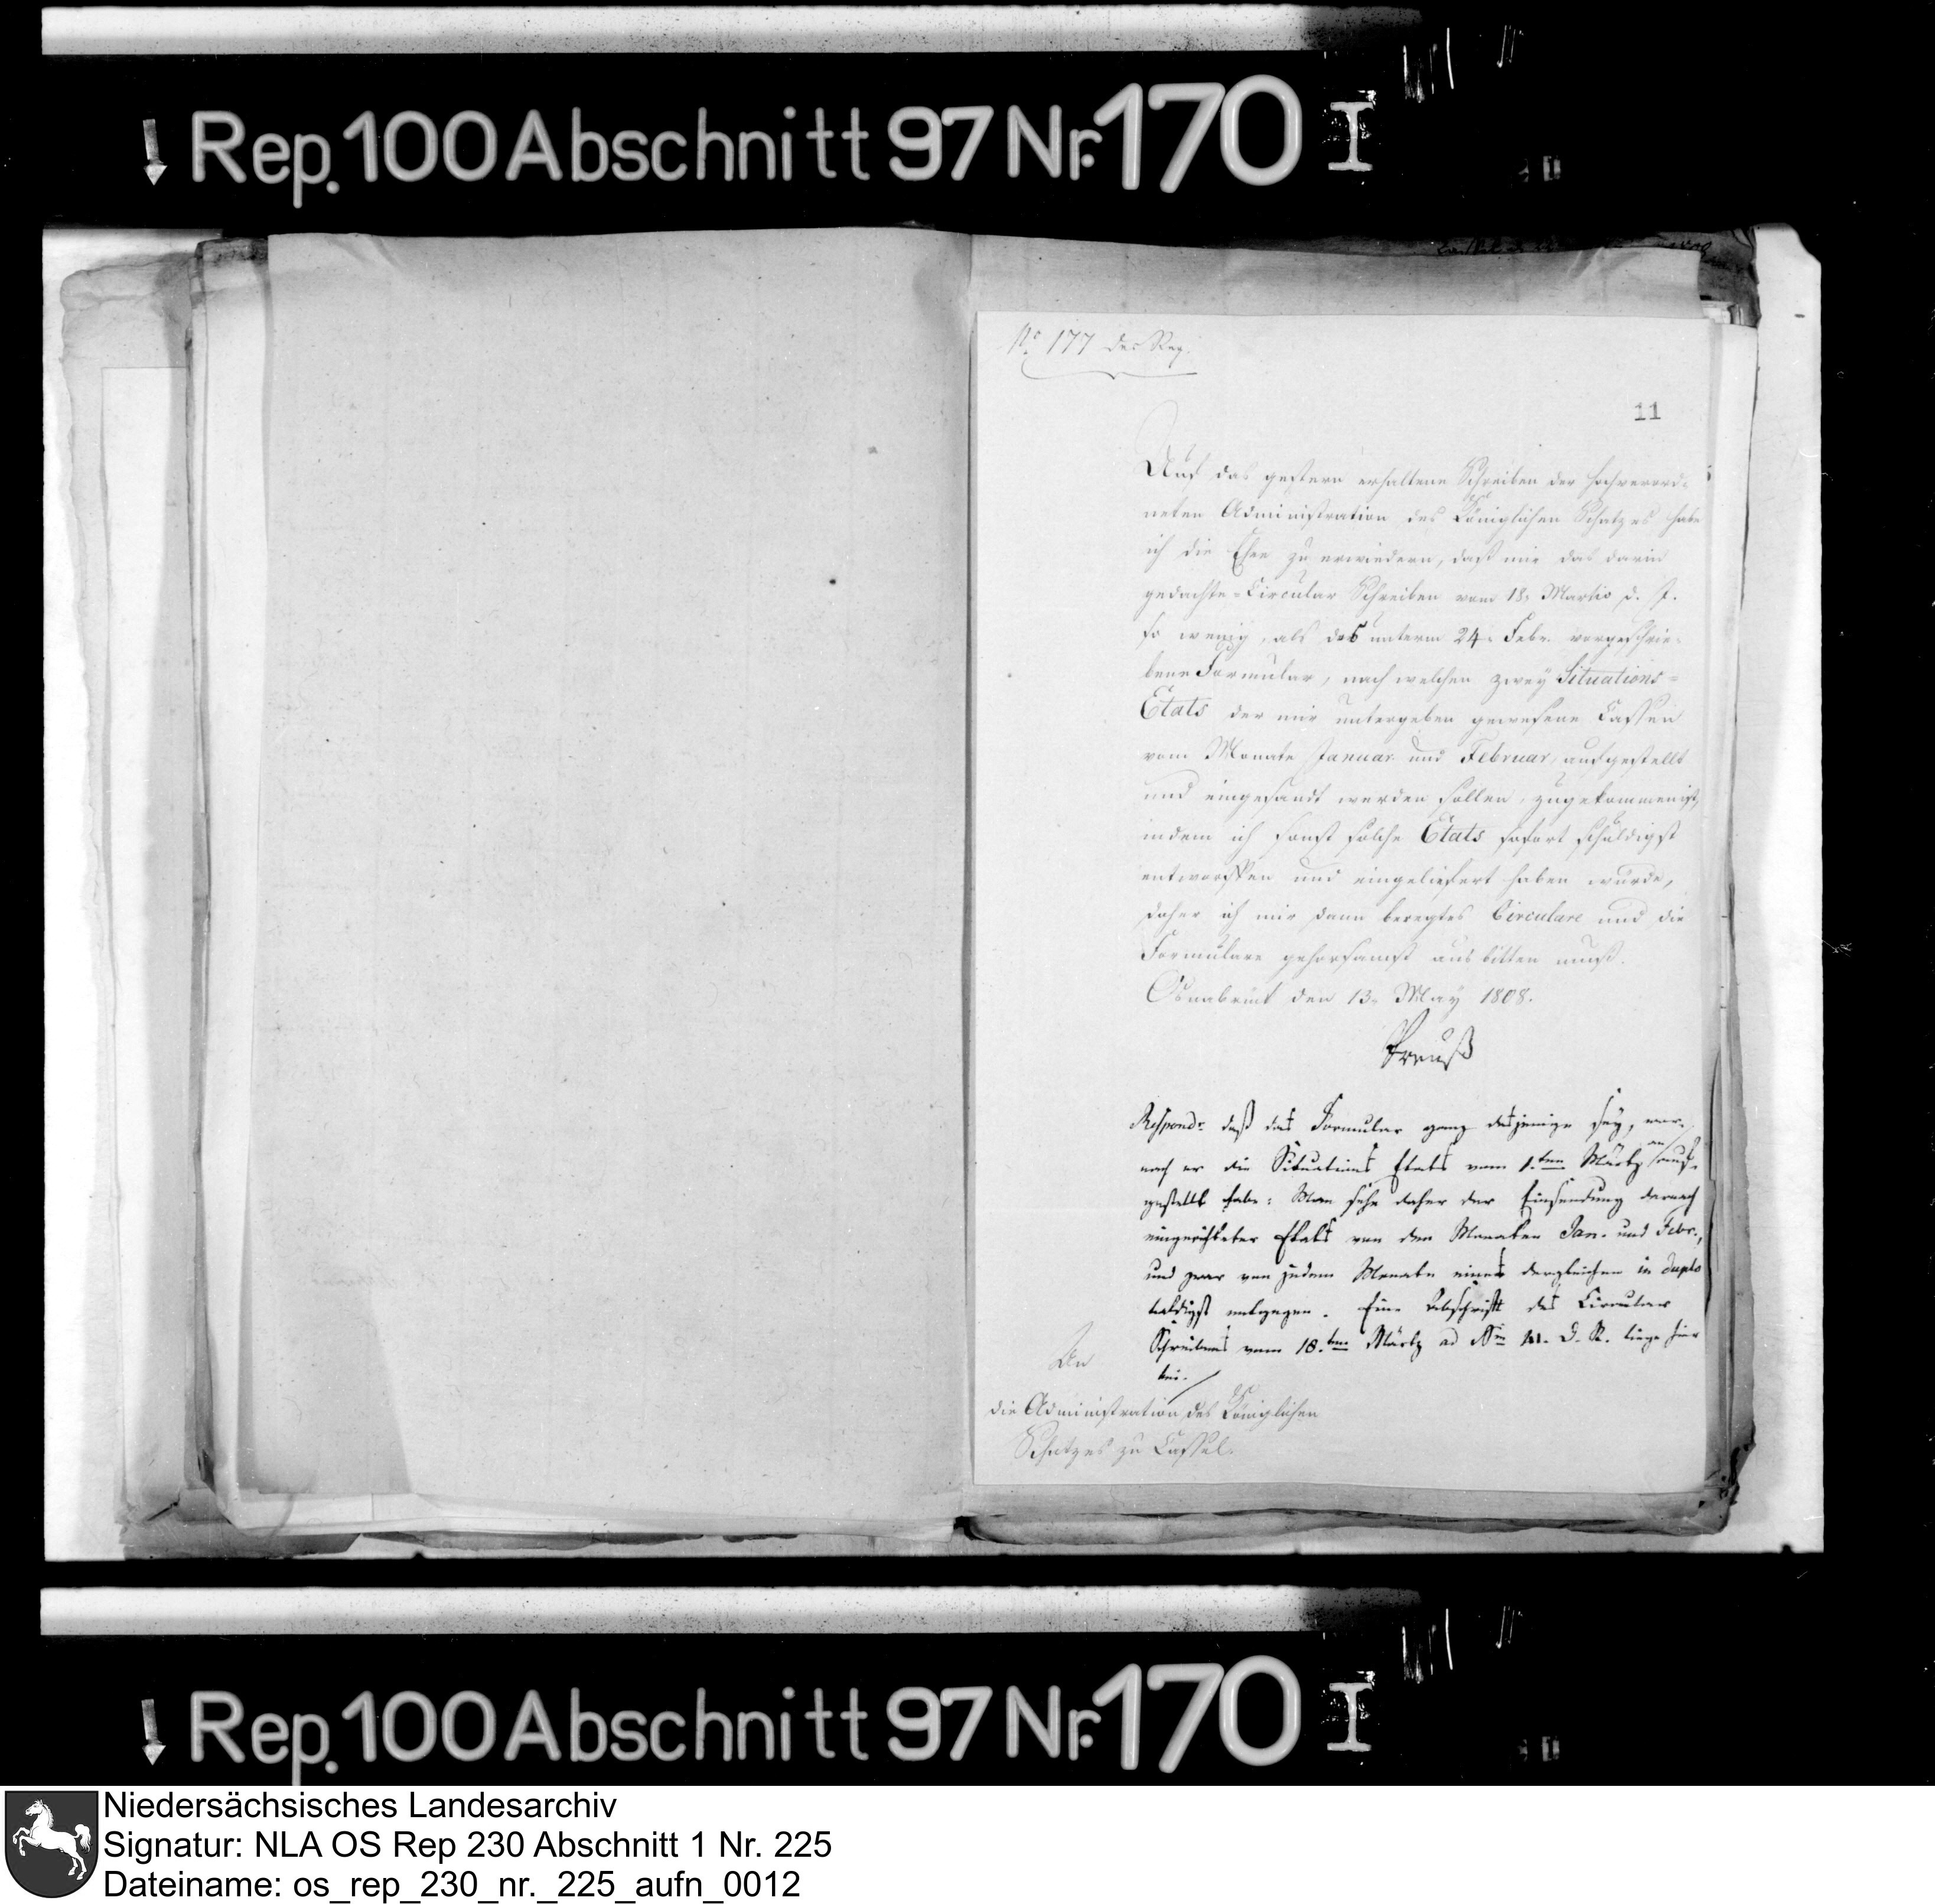 Rep. 100 Abschnitt 97 Nr. 170 I
No 177 des Reg.
11
Auf das gestern erhaltene Schreiben der hochverord-
neten Administration des Königlichen Schatzes habe
ich die Ehre zu erwiedern, daß mir das darin
gedachte Circular Schreiben vom 18. Martio d. J.
so wenig, als das unterm 24. Febr. vorgeschrie-
bene Formular, nach welchen zwey Situations-
Etats der mir untergeben gewesene Cassen
vom Monate Januar und Februar, aufgestellt
und eingesandt werden sollen, zugekommen ist,
indem ich sonst solche Etats sofort schuldigst
entworffen und eingeliefert haben würde,
daher ich mir dann beregtes Circulare und die
Formulare gehorsamst ausbitten muß.
Osnabrück den 13. May 1808.
Preuß
Respond: daß das Formular ganz dasjenige sey, wor-
nach er die Situations Etats vom 1.ten Märtz an auf-
gestellt habe: Man sehe daher der Einsendung darnach
eingerichteter Etats von den Monaten Jan. und Febr.,
und zwar von jedem Monate eines dergleichen in duplo
baldigst entgegen. Eine Abschrift des Circular
Schreibens vom 18.ten Märtz ad Nm 111. d. R. liege hier
bei.
An
die Administration des Königlichen
Schatzes zu Cassel.
Rep. 100 Abschnitt 97 Nr. 170 I
Niedersächsisches Landesarchiv
Signatur: NLA OS Rep 230 Abschnitt 1 Nr. 225
Dateiname: os_rep_230_nr._225_aufn_0012